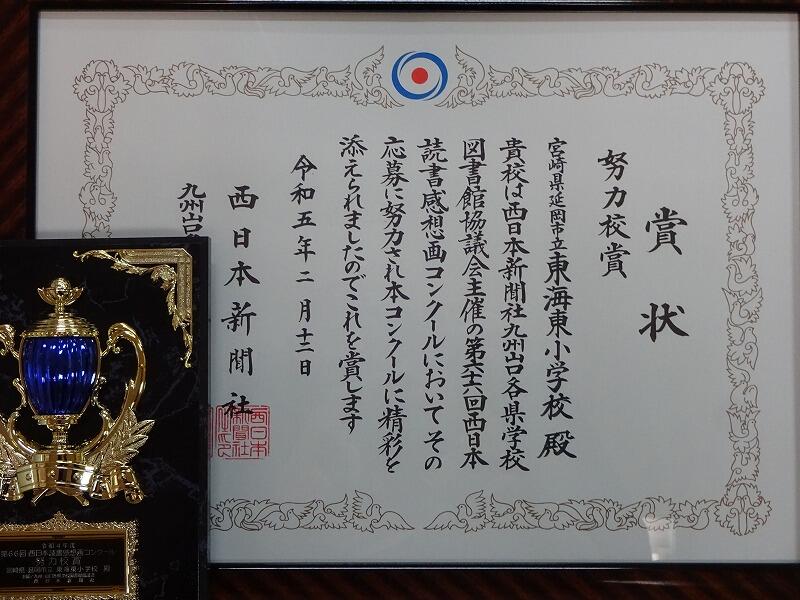 賞状
努力校賞
宮崎県延岡市立東海東小学校 殿
貴校は西日本新聞社九州山口各県学校
図書館協議会主催の第六十六回西日本
読書感想画コンクールにおいてその
応募に努力され本コンクールに精彩を
添えられましたのでこれを賞します
令和五年二月十二日
西日本新聞社
九州山口
令和4年度
第66回 西日本読書感想画コンクール
努力校賞
宮崎県 延岡市立 東海東小学校 殿
西日本新聞社